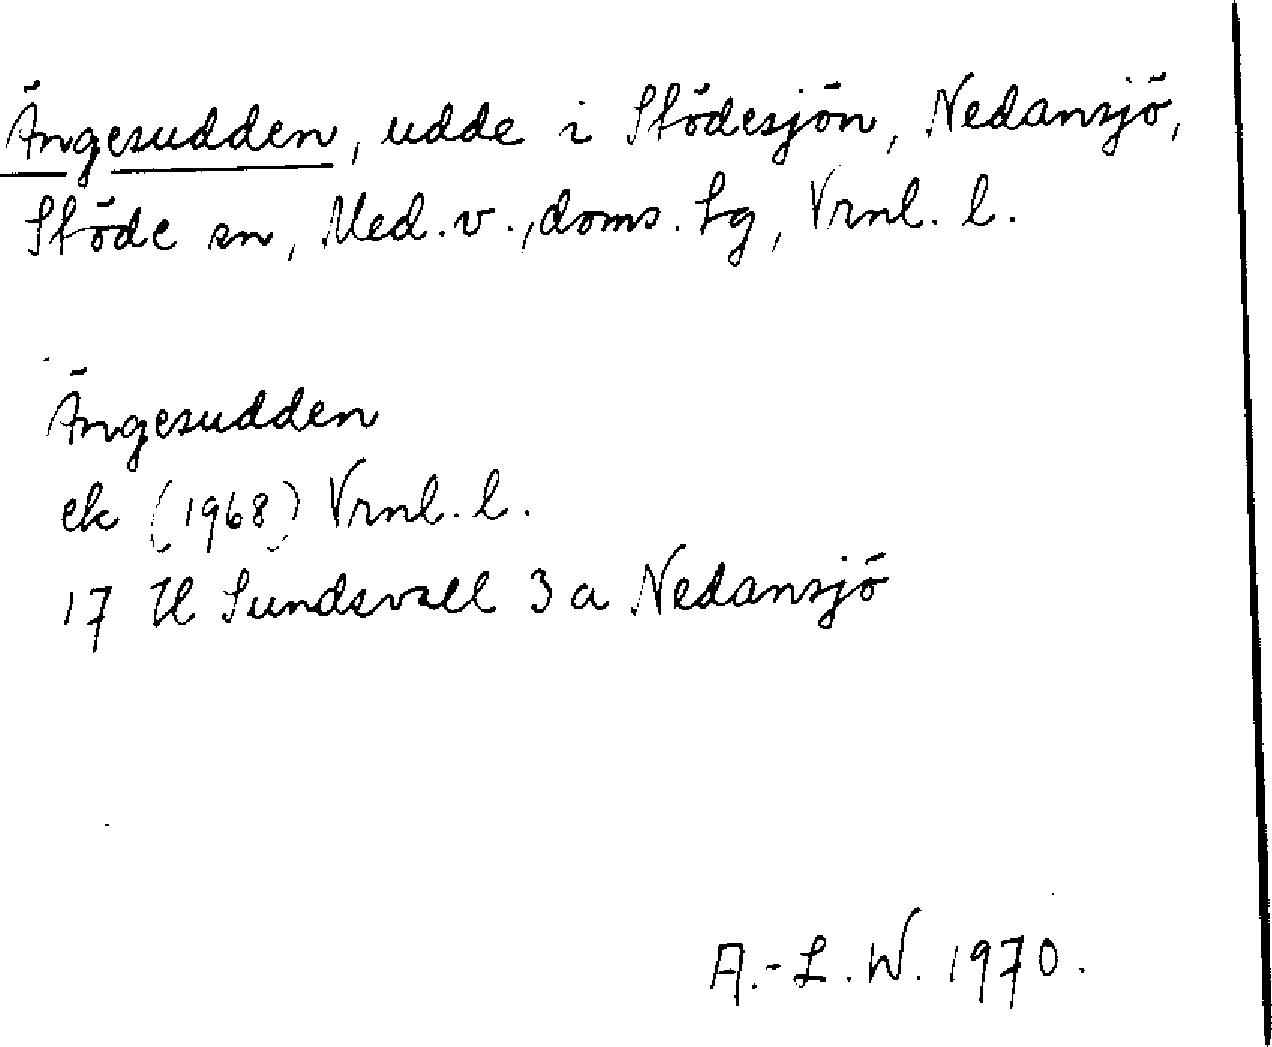 Ängesudden, udde i Stödesjön, Nedansjö,
Stöde sn, Med. v., doms. Lg, Vrnl. l.
Ängesudden
ek (1968) Vrnl. l.
17 H Sundsvall 3 a Nedansjö
A.-L. W. 1970.